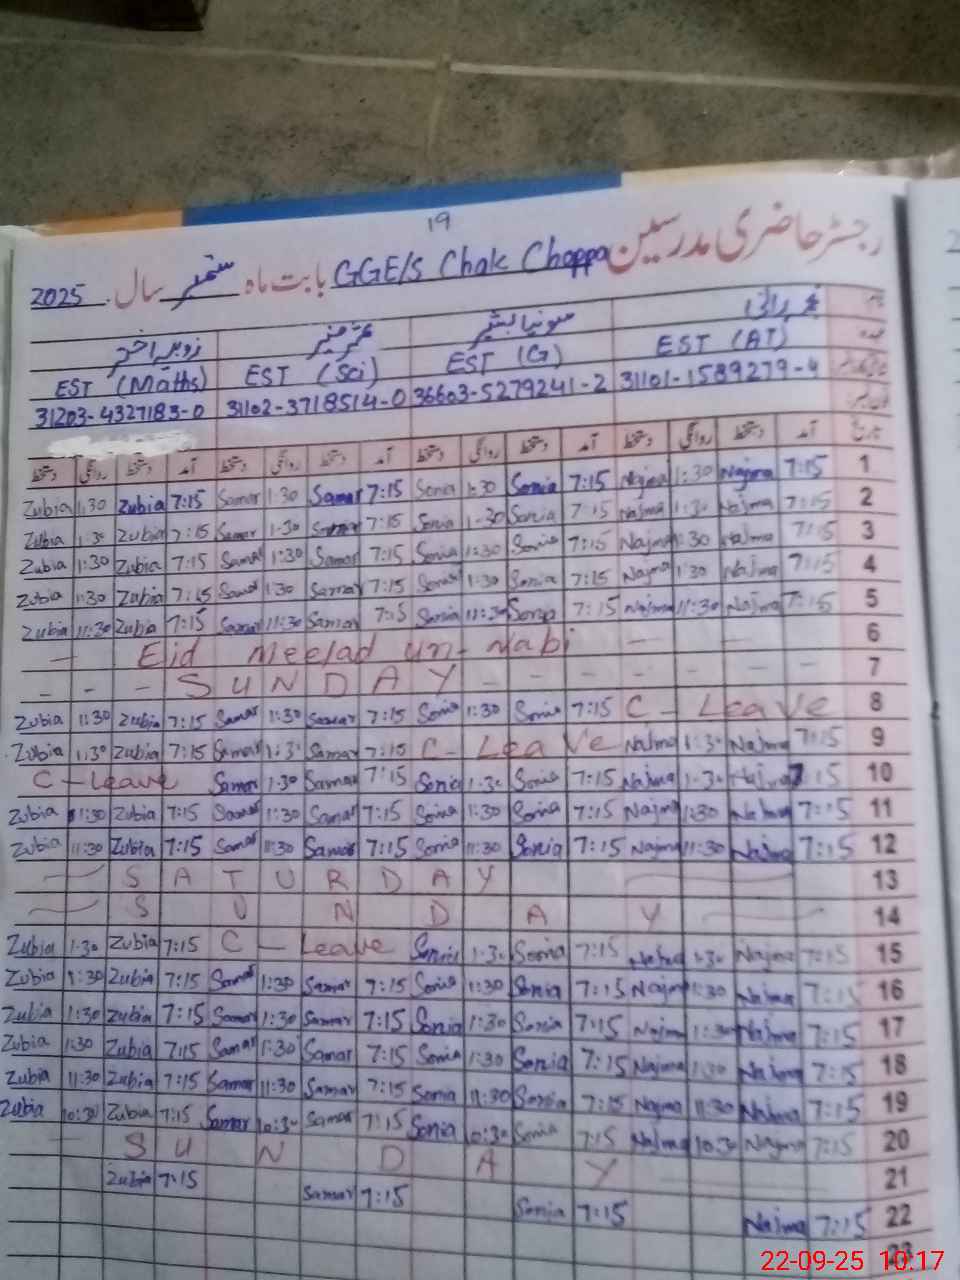 19
رجسٹر حاضری مدرسین GGE/S Chak Choppa بابت ماہ ستمبر سال 2025
زوبیہ اختر ثمر منیر سونیا بشیر
EST (Maths) EST (Sci) EST (G) EST (AT)
31203-4327183-0 31102-3718514-0 36603-5279241-2 31101-1589279-4
دستخط روانگی دستخط آمد دستخط روانگی دستخط آمد دستخط روانگی دستخط آمد دستخط روانگی دستخط آمد تاریخ
Zubia 1:30 Zubia 7:15 Samar 1:30 Samar 7:15 Sonia 1:30 Sonia 7:15 Najma 1:30 Najma 7:15 1
Zubia 1:30 Zubia 7:15 Samar 1:30 Samar 7:15 Sonia 1:30 Sonia 7:15 Najma 1:30 Najma 7:15 2
Zubia 1:30 Zubia 7:15 Samar 1:30 Samar 7:15 Sonia 1:30 Sonia 7:15 Najma 1:30 Najma 7:15 3
Zubia 1:30 Zubia 7:15 Samar 1:30 Samar 7:15 Sonia 1:30 Sonia 7:15 Najma 1:30 Najma 7:15 4
Zubia 11:30 Zubia 7:15 Samar 11:30 Samar 7:15 Sonia 11:30 Sonia 7:15 Najma 11:30 Najma 7:15 5
— Eid Meelad un-Nabi — — 6
- - - SUNDAY - - - - - - 7
Zubia 1:30 Zubia 7:15 Samar 1:30 Samar 7:15 Sonia 1:30 Sonia 7:15 C - Leave 8
Zubia 1:30 Zubia 7:15 Samar 1:30 Samar 7:15 C - Leave Najma 1:30 Najma 7:15 9
C - Leave Samar 1:30 Samar 7:15 Sonia 1:30 Sonia 7:15 Najma 1:30 Najma 7:15 10
Zubia 1:30 Zubia 7:15 Samar 1:30 Samar 7:15 Sonia 1:30 Sonia 7:15 Najma 1:30 Najma 7:15 11
Zubia 11:30 Zubia 7:15 Samar 11:30 Samar 7:15 Sonia 11:30 Sonia 7:15 Najma 11:30 Najma 7:15 12
— SATURDAY — 13
— SUNDAY — 14
Zubia 1:30 Zubia 7:15 C - Leave Sonia 1:30 Sonia 7:15 Najma 1:30 Najma 7:15 15
Zubia 1:30 Zubia 7:15 Samar 1:30 Samar 7:15 Sonia 1:30 Sonia 7:15 Najma 1:30 Najma 7:15 16
Zubia 1:30 Zubia 7:15 Samar 1:30 Samar 7:15 Sonia 1:30 Sonia 7:15 Najma 1:30 Najma 7:15 17
Zubia 1:30 Zubia 7:15 Samar 1:30 Samar 7:15 Sonia 1:30 Sonia 7:15 Najma 1:30 Najma 7:15 18
Zubia 11:30 Zubia 7:15 Samar 11:30 Samar 7:15 Sonia 11:30 Sonia 7:15 Najma 11:30 Najma 7:15 19
Zubia 10:30 Zubia 7:15 Samar 10:30 Samar 7:15 Sonia 10:30 Sonia 7:15 Najma 10:30 Najma 7:15 20
— SUNDAY 21
Zubia 7:15 Samar 7:15 Sonia 7:15 Najma 7:15 22
23
22-09-25 10:17